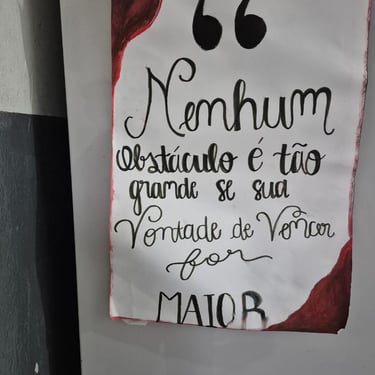 “
Nenhum
Obstáculo é tão
grande se sua
Vontade de Vencer
for
MAIOR